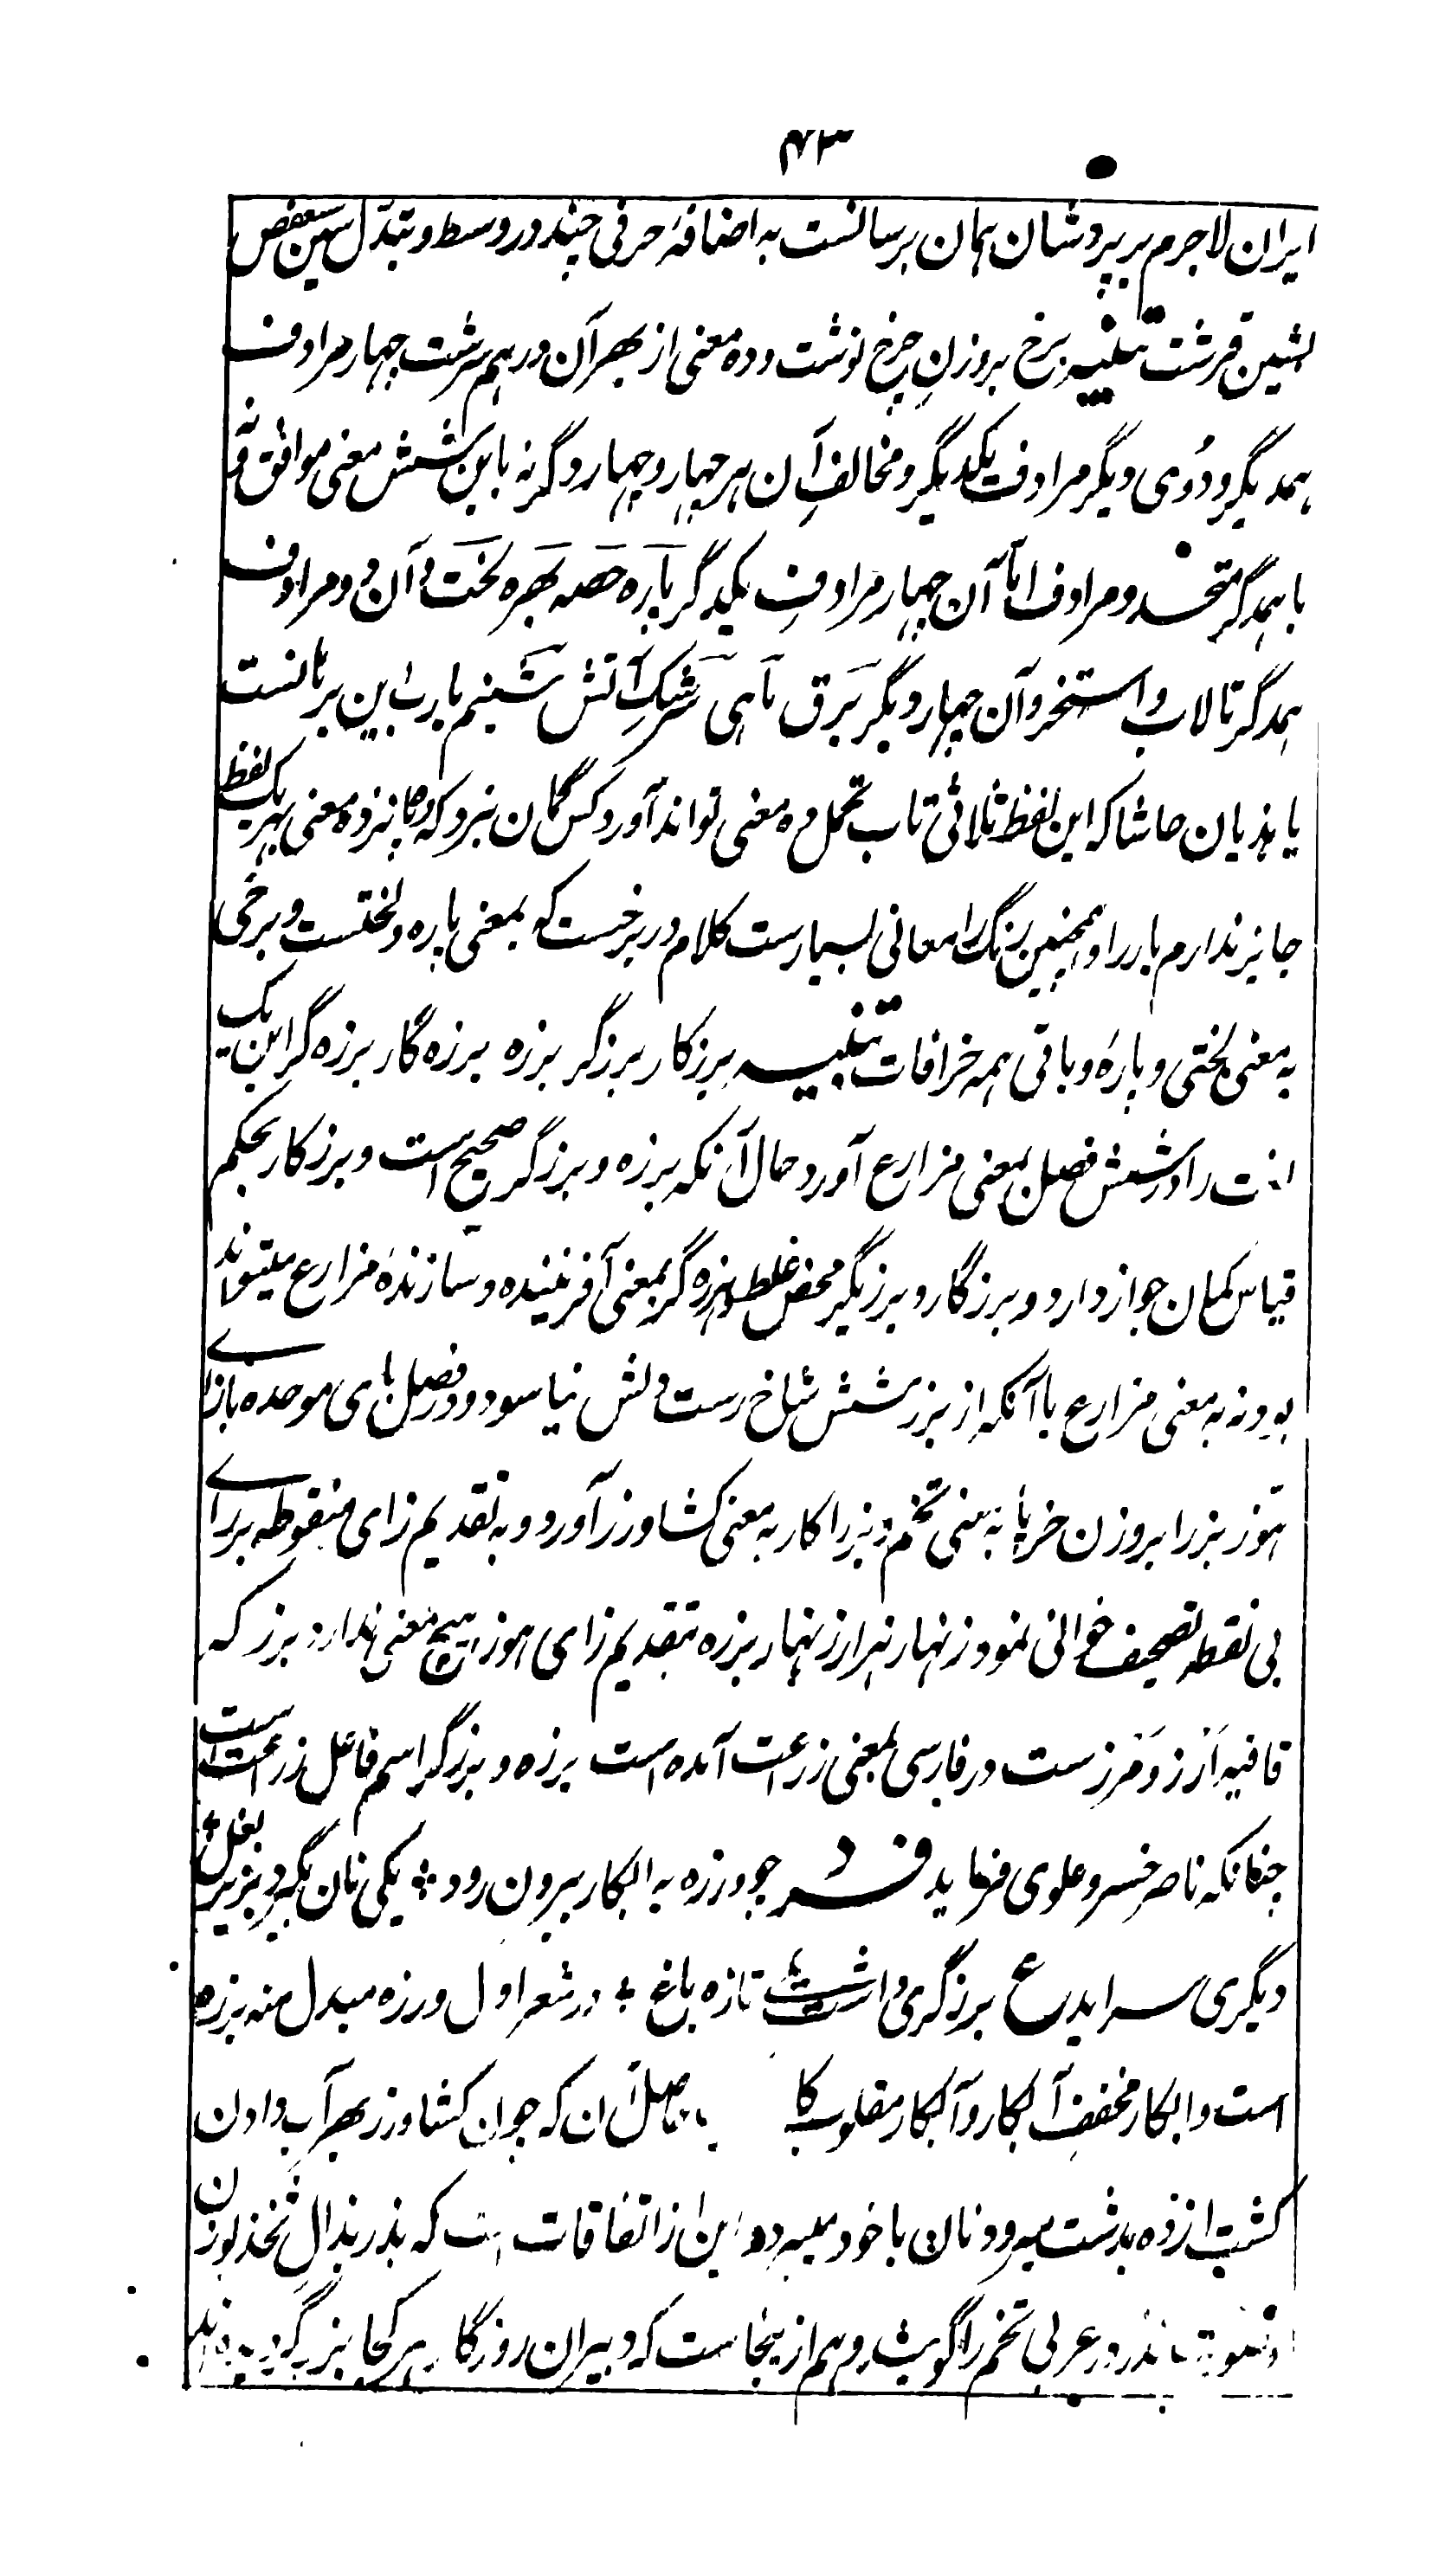 ۴۳
ایران لاجرم بر پردشان همان برسانست به اضافهٔ حرفی چند در وسط و تبدّل سین سعفص
بشین قرشت تنبیه برخ بروزنِ چرخ نوشت و ده معنی از بهر آن در هم سرشت چهار مرادف
همدیگر و دُوی دیگر مرادف یکدیگر و مخالفِ آن هر چهار و چهار دگر نه باین شش معنی موافق و نه
باهمدگر متحد و مرادف امّا آن چهار مرادفِ یکدیگر پاره حصه بهره لخت و آن دو مرادف
همدگر تالاب و استخر و آن چهار دیگر برق ماهی سرشکِ آتش شبنم یارب این برهانست
یا هذیان حاشا که این لفظ ثلاثی تاب تحمل ده معنی تواند آورد کس گمان نبرد که ما پانزده معنی بهر یک لفظ
جایز نداریم بار را و همچنین رنگ را معانی بسیارست کلام در برخست که بمعنی پاره و لختست و برخی
به معنی لختی و پارهٔ و باقی همه خرافات تنبیه برزکار برزگر برزه برزه گار برزه گر این یک
لغت را در شش فصل بمعنی مزارع آورد حال آنکه برزه و برزگر صحیح است و برزکار بحکم
قیاس گمان جواز دارد و برزگار و برزیگر محض غلط و برزه گر بمعنی آفریننده و سازندهٔ مزارع میتواند
بود نه به معنی مزارع با آنکه از برز شش شاخ رست دلش نیاسود و در فصل بای موحده با زای
هوز بزر را بروزن خرپا به معنی تخم و بزراکار به معنی کشاورز آورد و به تقدیم زای منقوطه بر رای
بی نقطه تصحیف خوانی نمود زنهار هزار زنهار بزره بتقدیم زای هوز هیچ معنی ندارد برز که
قافیه اَرز و مَرز ست در فارسی بمعنی زراعت آمده است برزه و برزگر اسم فاعل زراعت است
چنانکه ناصر خسرو علوی فرماید فرد چو ورزه به ابکار بیرون رود ÷ یکی نان بگیرد بزیر بغل ÷
دیگری سراید ع برزگری داشت تازه باغ ÷ در شعر اول ورزه مبدل منه برزه
است و ابکار مخففِ آبکار و آبکار مقلوب کا حاصل آن که چون کشاورز بهر آب دادن
کشت از ده بدشت میرود نان با خود میبرد این از اتفاقات است که بذر بذال ثخذ بوزن
بذر در عربی تخم را گویند و هم از ینجاست که دبیران روزگار هر کجا بزرگر دیده اند